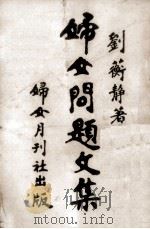 劉蘅靜著
婦女問題文集
婦女月刊社出版
mtoou.info